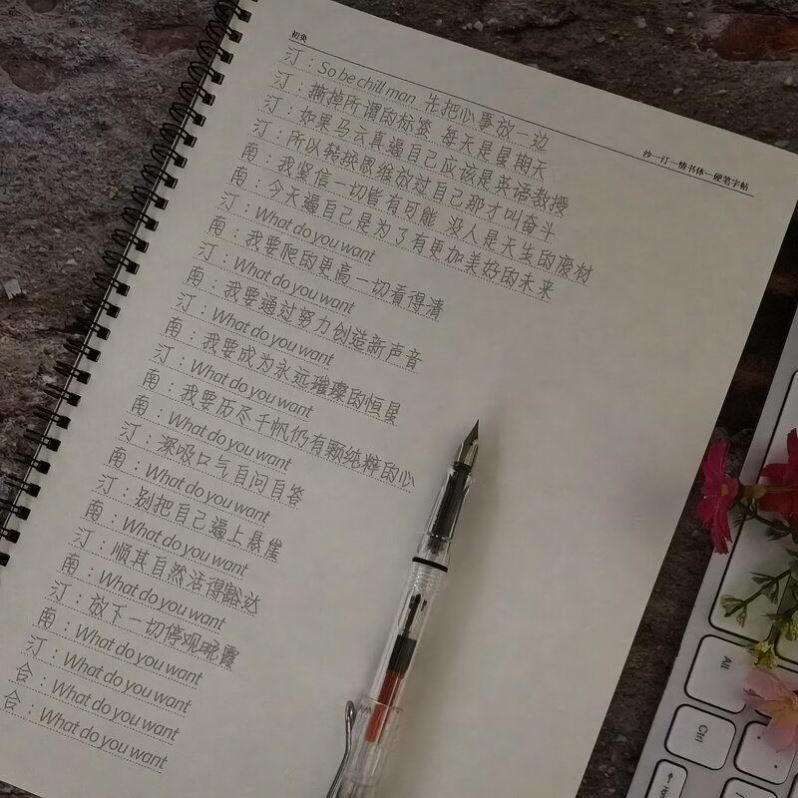 初奂
抄一汀一情书体一硬笔字帖
汀：So be chill man 先把心事放一边
汀：撕掉所谓的标签 每天是星期天
汀：如果马云真逼自己应该是英语教授
汀：所以转换思维放过自己那才叫奋斗
南：我坚信一切皆有可能 没人是天生的废材
南：今天逼自己是为了有更加美好的未来
汀：What do you want
南：我要爬的更高一切看得清
汀：What do you want
南：我要通过努力创造新声音
汀：What do you want
南：我要成为永远璀璨的恒星
汀：What do you want
南：我要历尽千帆仍有颗纯粹的心
南：What do you want
汀：深吸口气自问自答
南：What do you want
汀：别把自己逼上悬崖
南：What do you want
汀：顺其自然活得豁达
南：What do you want
汀：放下一切停观晚霞
南：What do you want
汀：What do you want
合：What do you want
合：What do you want
Alt
Ctrl